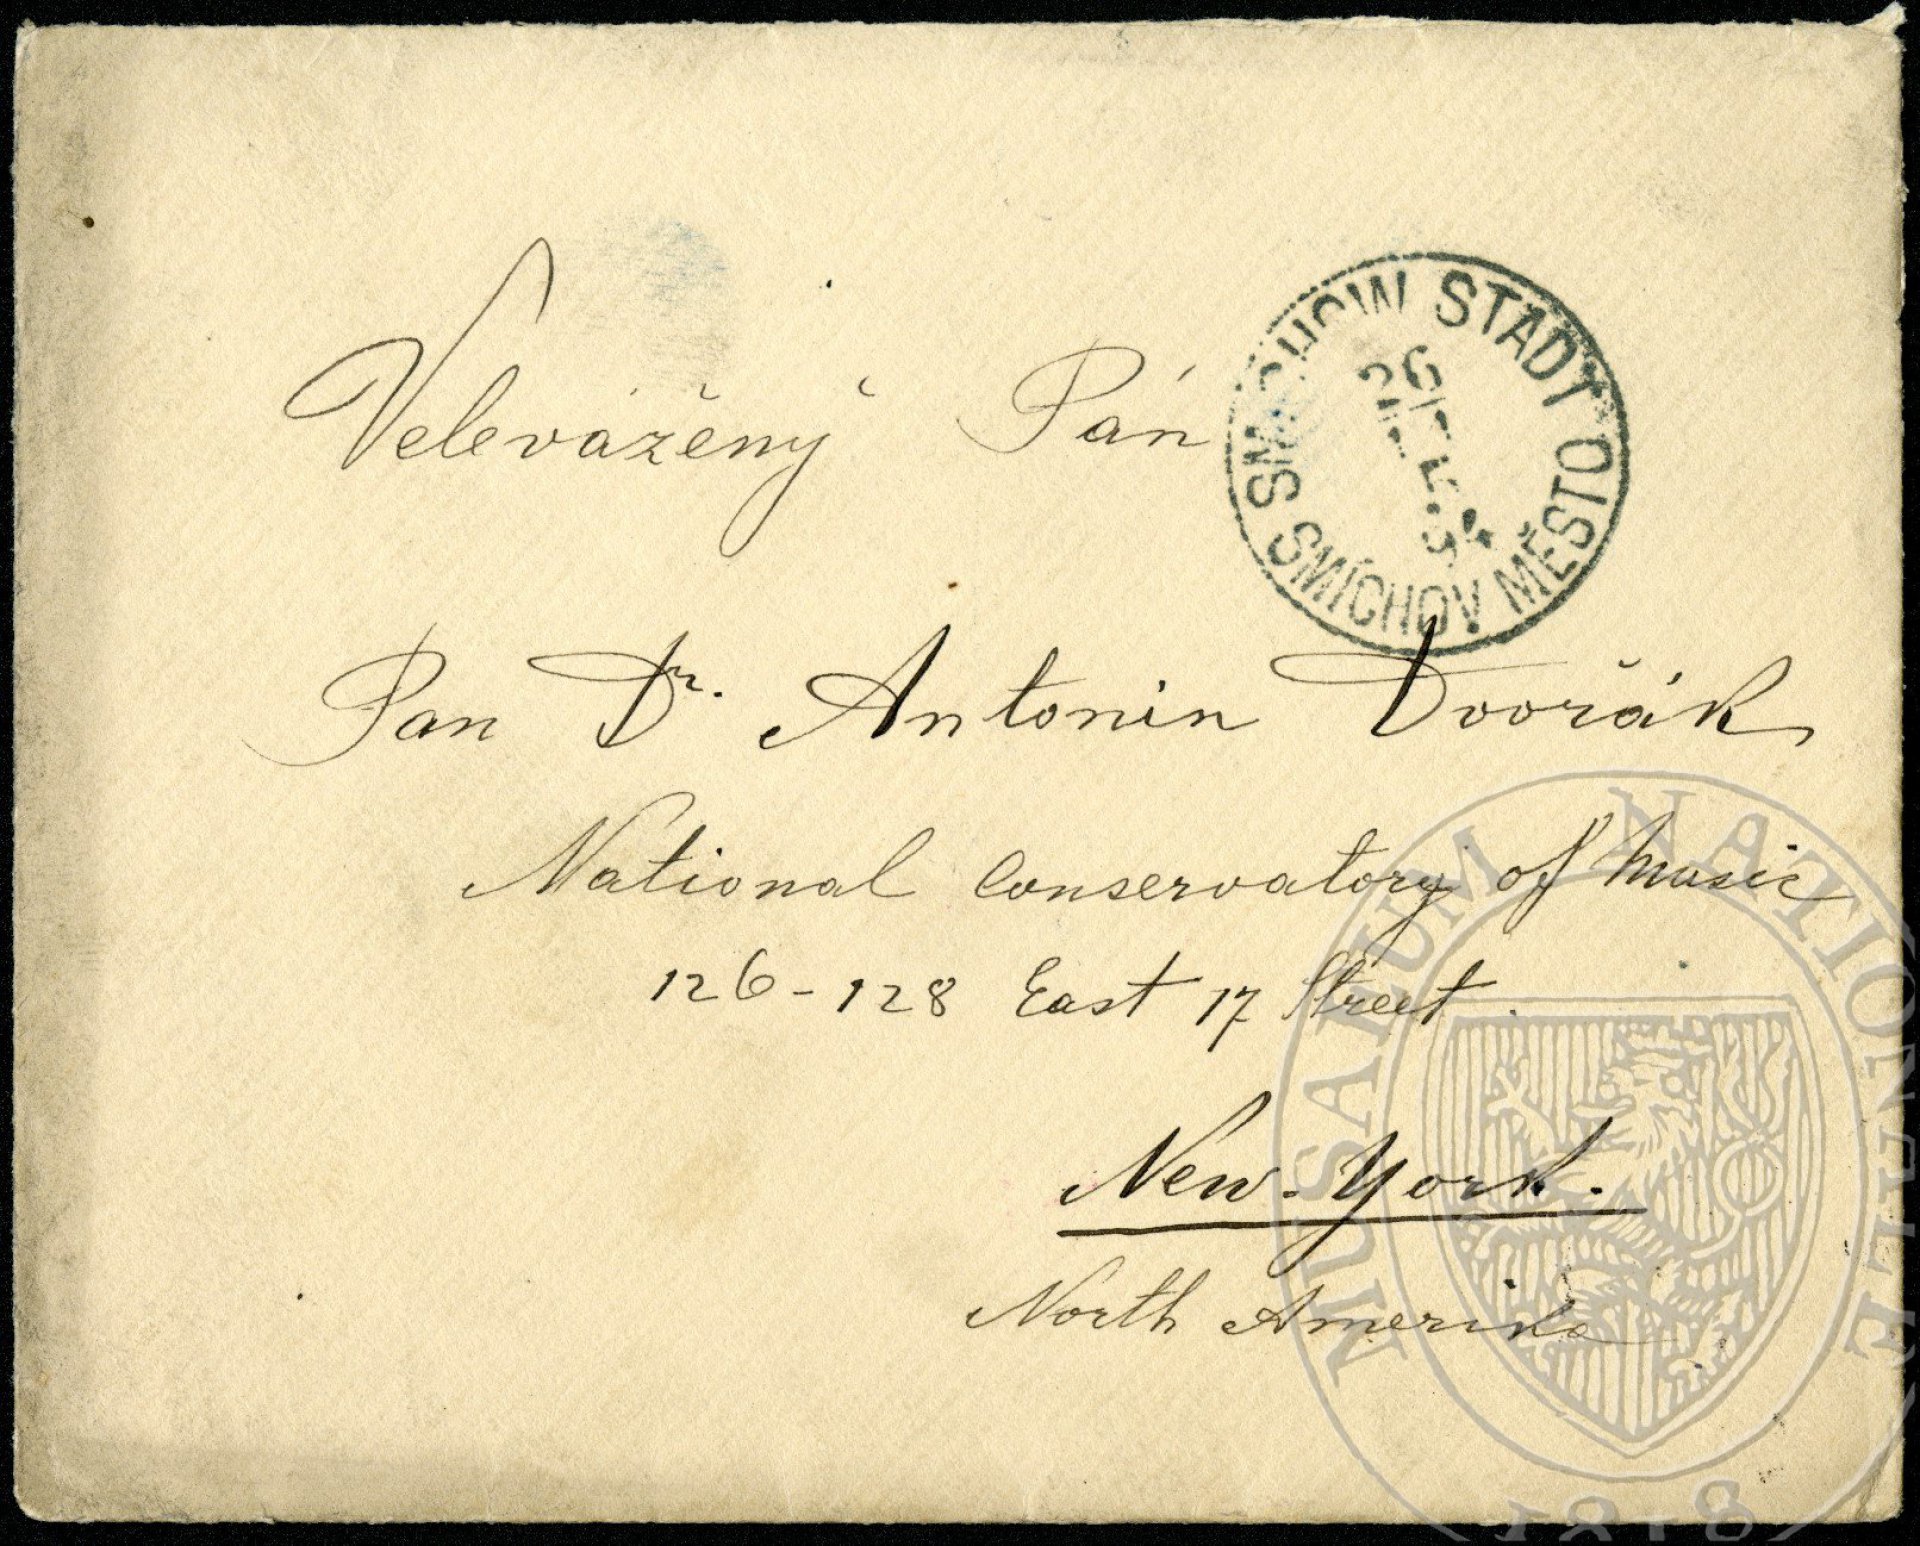 Velevážený Pán
SMICHOW STADT
SMÍCHOV MĚSTO
Pan Dr. Antonin Dvořák
National Conservatory of Music
126-128 East 17 Street
New-York.
North Amerika
MUSAEUM NATIONALE
1818